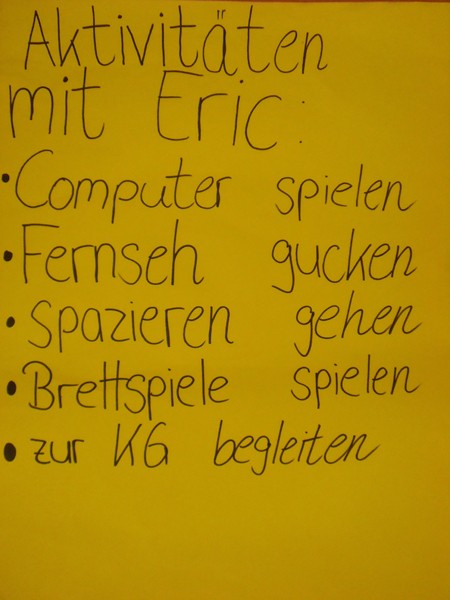 Aktivitäten
mit Eric:
• Computer spielen
• Fernseh gucken
• spazieren gehen
• Brettspiele spielen
• zur KG begleiten